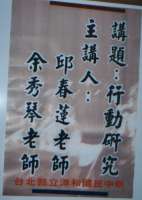 講題：行動研究
主講人：
邱春蓮老師
余秀琴老師
台北縣立漳和國民中學